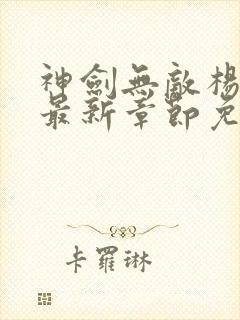 神劍無敵楊
最新章節免
卡羅琳